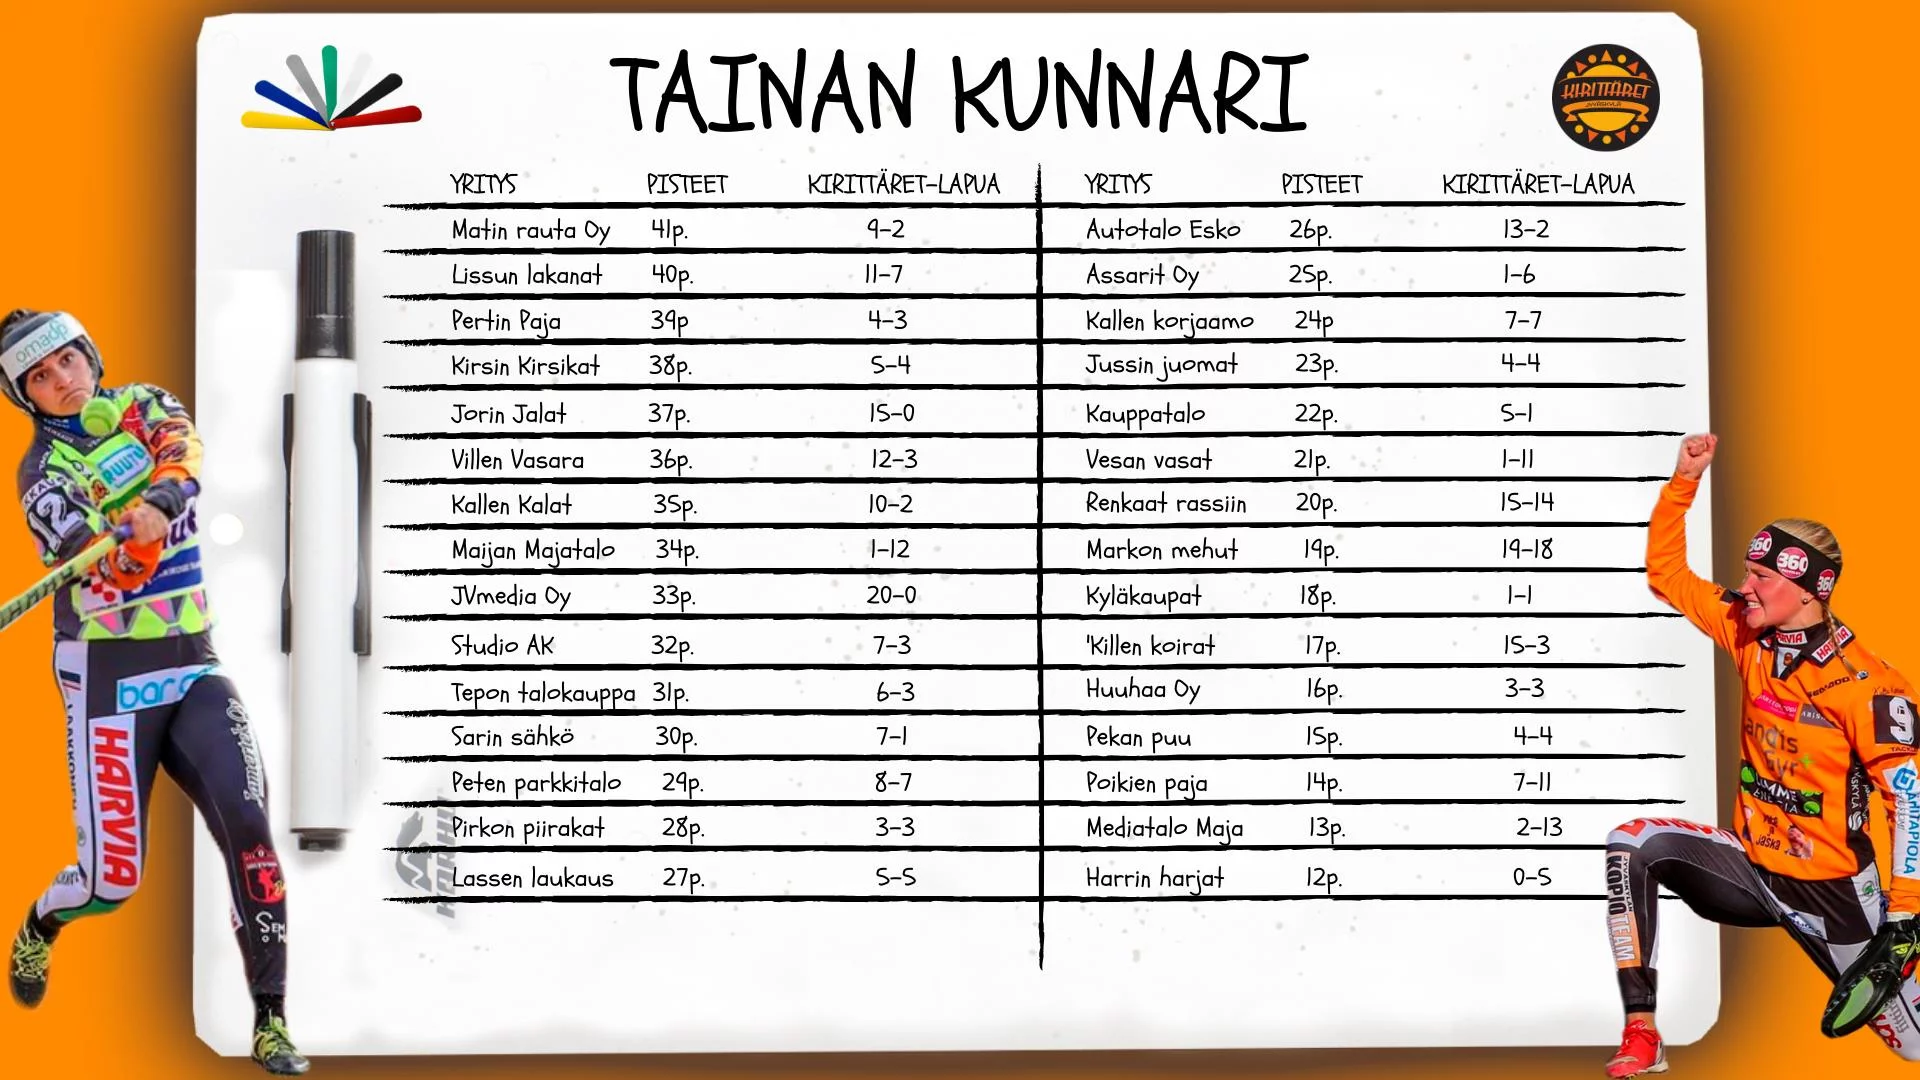 TAINAN KUNNARI
KIRITTÄRET
JYVÄSKYLÄ
YRITYS PISTEET KIRITTÄRET-LAPUA
Matin rauta Oy 41p. 9-2
Lissun lakanat 40p. 11-7
Pertin Paja 39p 4-3
Kirsin Kirsikat 38p. 5-4
Jorin Jalat 37p. 15-0
Villen Vasara 36p. 12-3
Kallen Kalat 35p. 10-2
Maijan Majatalo 34p. 1-12
JVmedia Oy 33p. 20-0
Studio AK 32p. 7-3
Tepon talokauppa 31p. 6-3
Sarin sähkö 30p. 7-1
Peten parkkitalo 29p. 8-7
Pirkon piirakat 28p. 3-3
Lassen laukaus 27p. 5-5
YRITYS PISTEET KIRITTÄRET-LAPUA
Autotalo Esko 26p. 13-2
Assarit Oy 25p. 1-6
Kallen korjaamo 24p 7-7
Jussin juomat 23p. 4-4
Kauppatalo 22p. 5-1
Vesan vasat 21p. 1-11
Renkaat rassiin 20p. 15-14
Markon mehut 19p. 19-18
Kyläkaupat 18p. 1-1
'Killen koirat 17p. 15-3
Huuhaa Oy 16p. 3-3
Pekan puu 15p. 4-4
Poikien paja 14p. 7-11
Mediatalo Maja 13p. 2-13
Harrin harjat 12p. 0-5
omasp
RUUTU
12
HARVIA
360
360
360
HARVIA
9
KOPIOTEAM